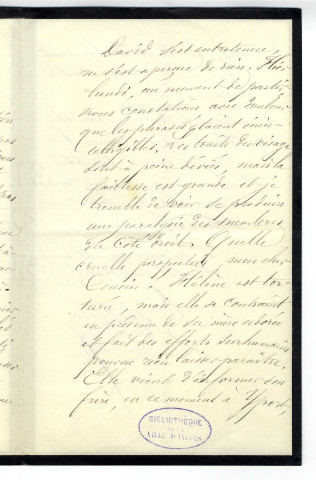 David s'est entretenue,
ne s'est aperçue de rien. Hier
lundi, au moment de partir
nous constations avec douleur
que les phrases étaient inin-
telligibles, les traits du visage
sont à peine déviés, mais la
faiblesse est grande et je
tremble de voir se produire
une paralysie des membres
du côté droit. Quelle
cruelle perspective, mon cher
Cousin. Hélène est tor-
turée, mais elle se contraint
en présence de sa mère adorée
et fait des efforts surhumains
pour ne rien laisser paraître.
Elle vient d'informer son
frère, en ce moment à Yport,
BIBLIOTHÈQUE
DE LA
VILLE D'ANGERS